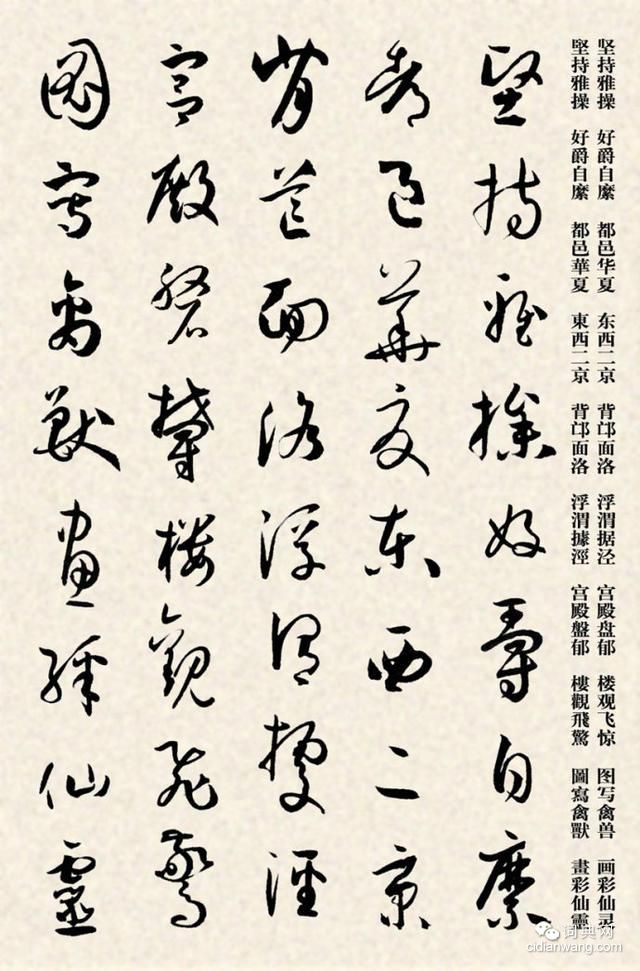 坚持雅操 好爵自縻 都邑华夏 东西二京 背邙面洛 浮渭据泾 宫殿盘郁 楼观飞惊 图写禽兽 画彩仙灵
堅持雅操 好爵自縻 都邑華夏 東西二京 背邙面洛 浮渭據涇 宮殿盤郁 樓觀飛驚 圖寫禽獸 畫彩仙靈
堅持雅操好爵自縻
都邑華夏東西二京
背芒面洛浮渭據涇
宮殿磐鬱樓觀飛驚
圖寫禽獸畫綵仙靈
词典网
cidianwang.com